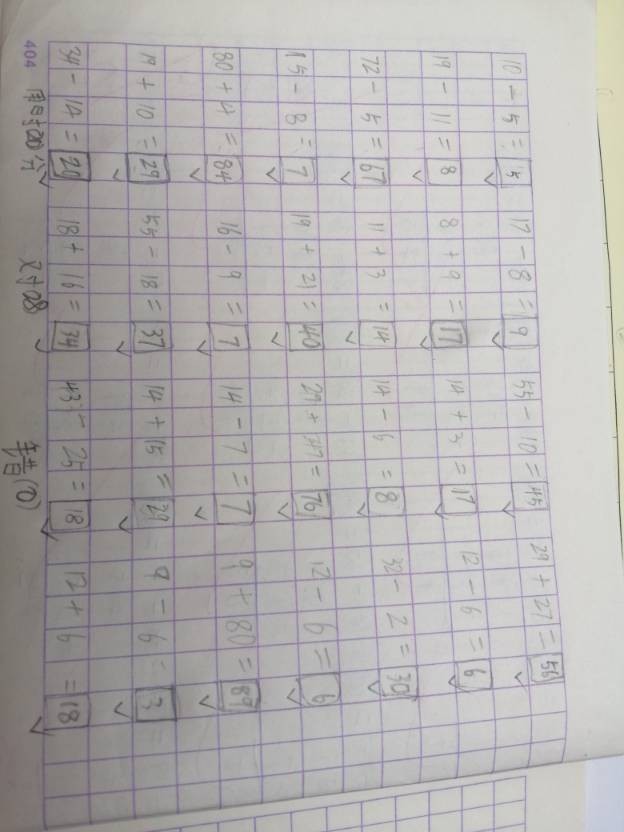 10 - 5 = 5 17 - 8 = 9 55 - 10 = 45 29 + 27 = 56
19 - 11 = 8 8 + 9 = 17 14 + 3 = 17 12 - 6 = 6
72 - 5 = 67 11 + 3 = 14 14 - 6 = 8 32 - 2 = 30
15 - 8 = 7 19 + 21 = 40 29 + 47 = 76 12 - 6 = 6
80 + 4 = 84 16 - 9 = 7 14 - 7 = 7 9 + 80 = 89
19 + 10 = 29 55 - 18 = 37 14 + 15 = 29 9 - 6 = 3
34 - 14 = 20 18 + 16 = 34 43 - 25 = 18 12 + 6 = 18
404 对28 错(0)